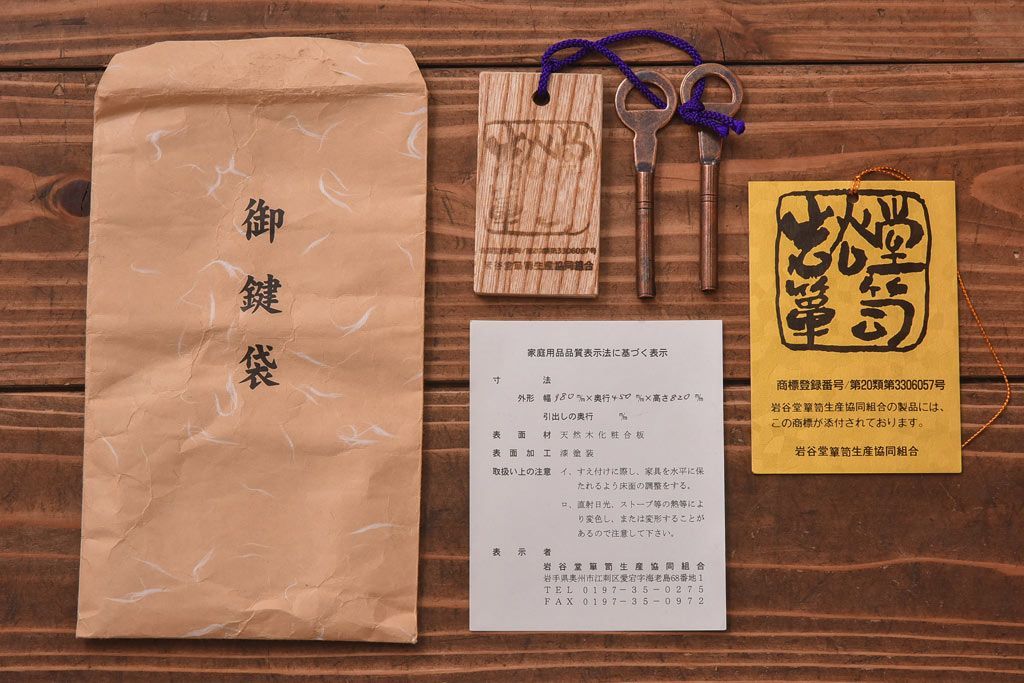 御鍵袋
岩谷堂
簞笥
商標登録番号 第20類第3306057号
岩谷堂簞笥生産協同組合
家庭用品品質表示法に基づく表示
寸法
外形 幅980㎜×奥行450㎜×高さ820㎜
引出しの奥行 ㎜
表面材 天然木化粧合板
表面加工 漆塗装
取扱い上の注意 イ、すえ付けに際し、家具を水平に保
たれるよう床面の調整をする。
ロ、直射日光、ストーブ等の熱等によ
り変色し、または変形することが
あるので注意して下さい。
表示者
岩谷堂簞笥生産協同組合
岩手県奥州市江刺区愛宕字海老島68番地1
TEL 0197-35-0275
FAX 0197-35-0972
岩谷堂
簞笥
商標登録番号/第20類第3306057号
岩谷堂簞笥生産協同組合の製品には、
この商標が添付されております。
岩谷堂簞笥生産協同組合